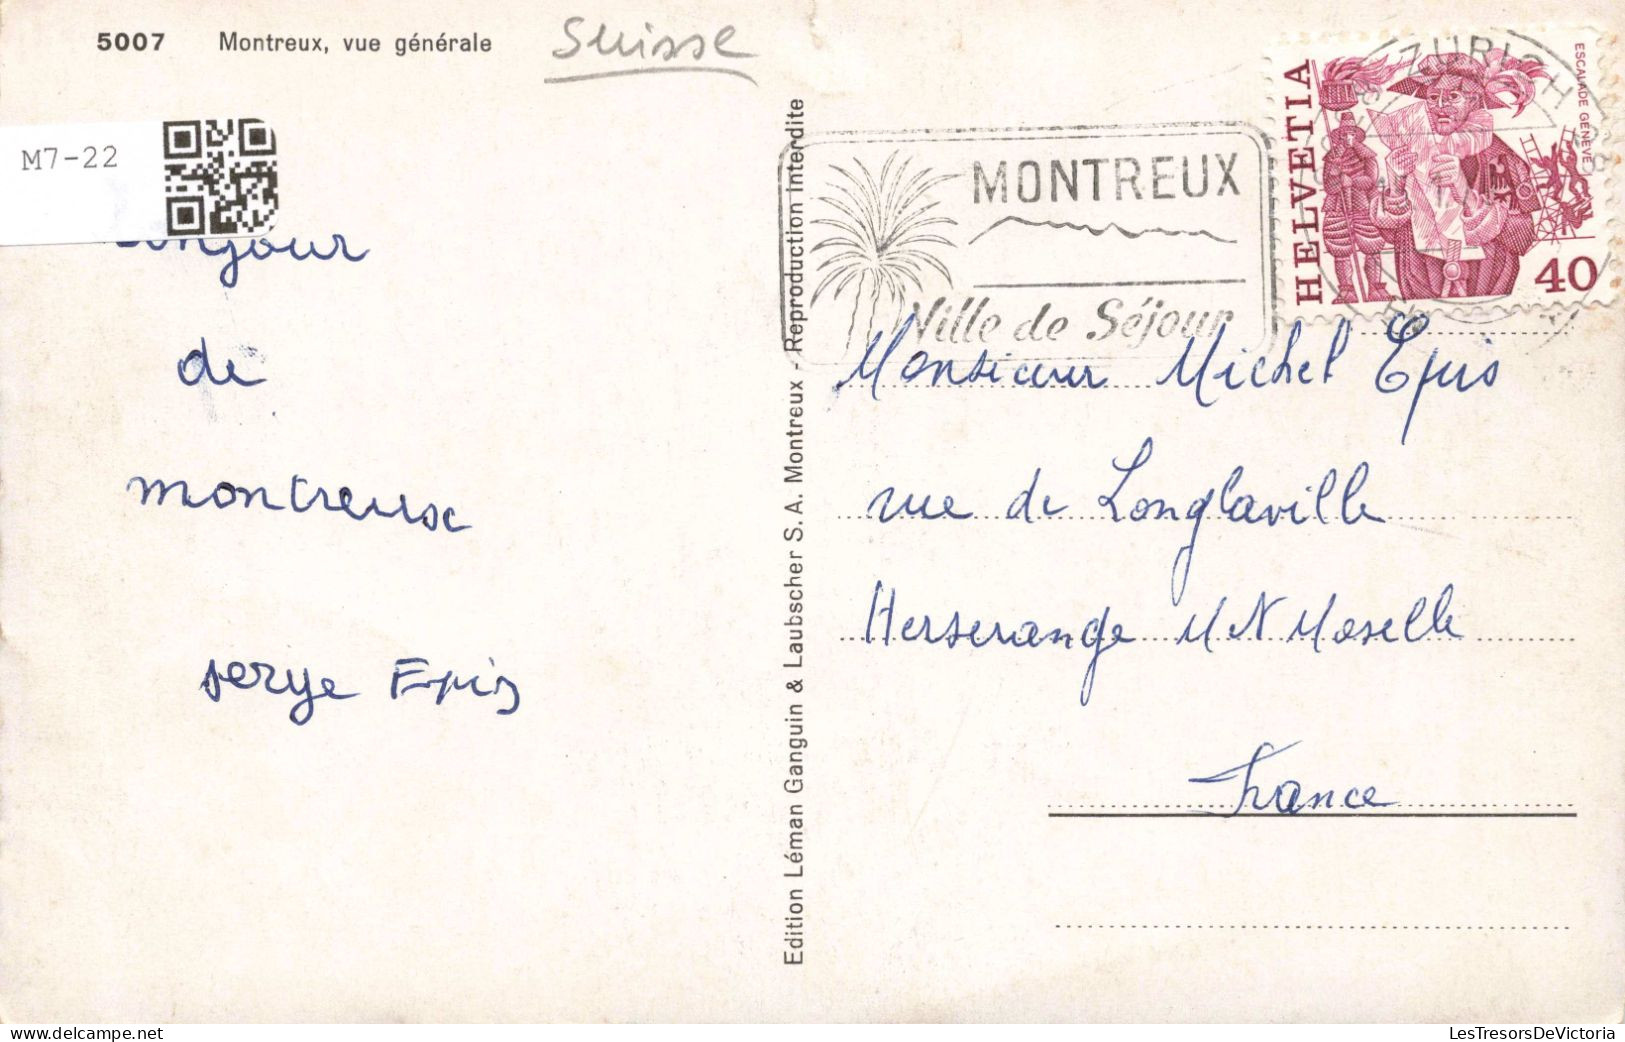 5007 Montreux, vue générale
Suisse
M7-22
Bonjour
de
montreux
serge Epis
Edition Léman Ganguin & Laubscher S. A. Montreux - Reproduction interdite
MONTREUX
Ville de Séjour
ZÜRICH
HELVETIA
ESCALADE GENÈVE
40
Monsieur Michel Epis
rue de Longlaville
Herserange M N Moselle
France
LesTresorsDeVictoria.com